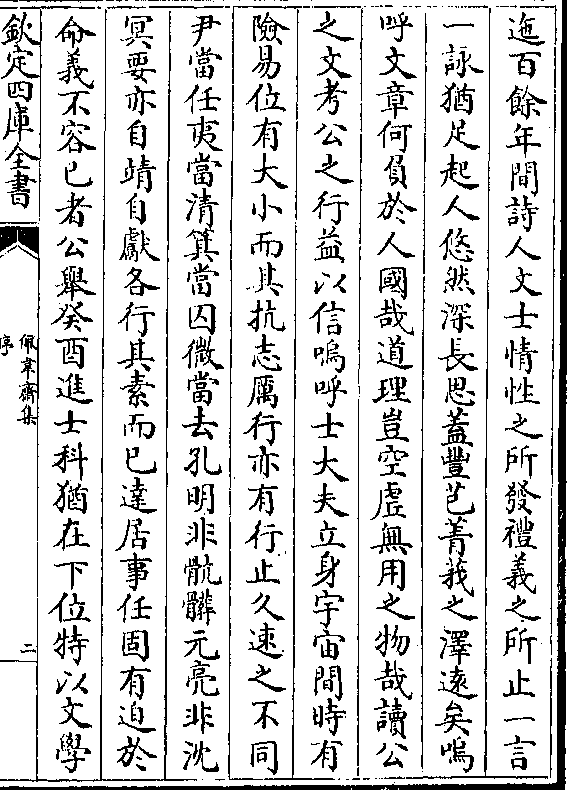 迤百餘年間詩人文士情性之所發禮義之所止一言
一詠猶足起人悠然深長思蓋豐芑菁莪之澤遠矣嗚
呼文章何負於人國哉道理豈空虛無用之物哉讀公
之文考公之行益以信嗚呼士大夫立身宇宙間時有
險易位有大小而其抗志厲行亦有行止久速之不同
尹當任夷當清箕當囚微當去孔明非骯髒元亮非沈
冥要亦自靖自獻各行其素而已達居事任固有迫於
命義不容已者公舉癸酉進士科猶在下位特以文學
欽定四庫全書
佩韋齋集
序
二